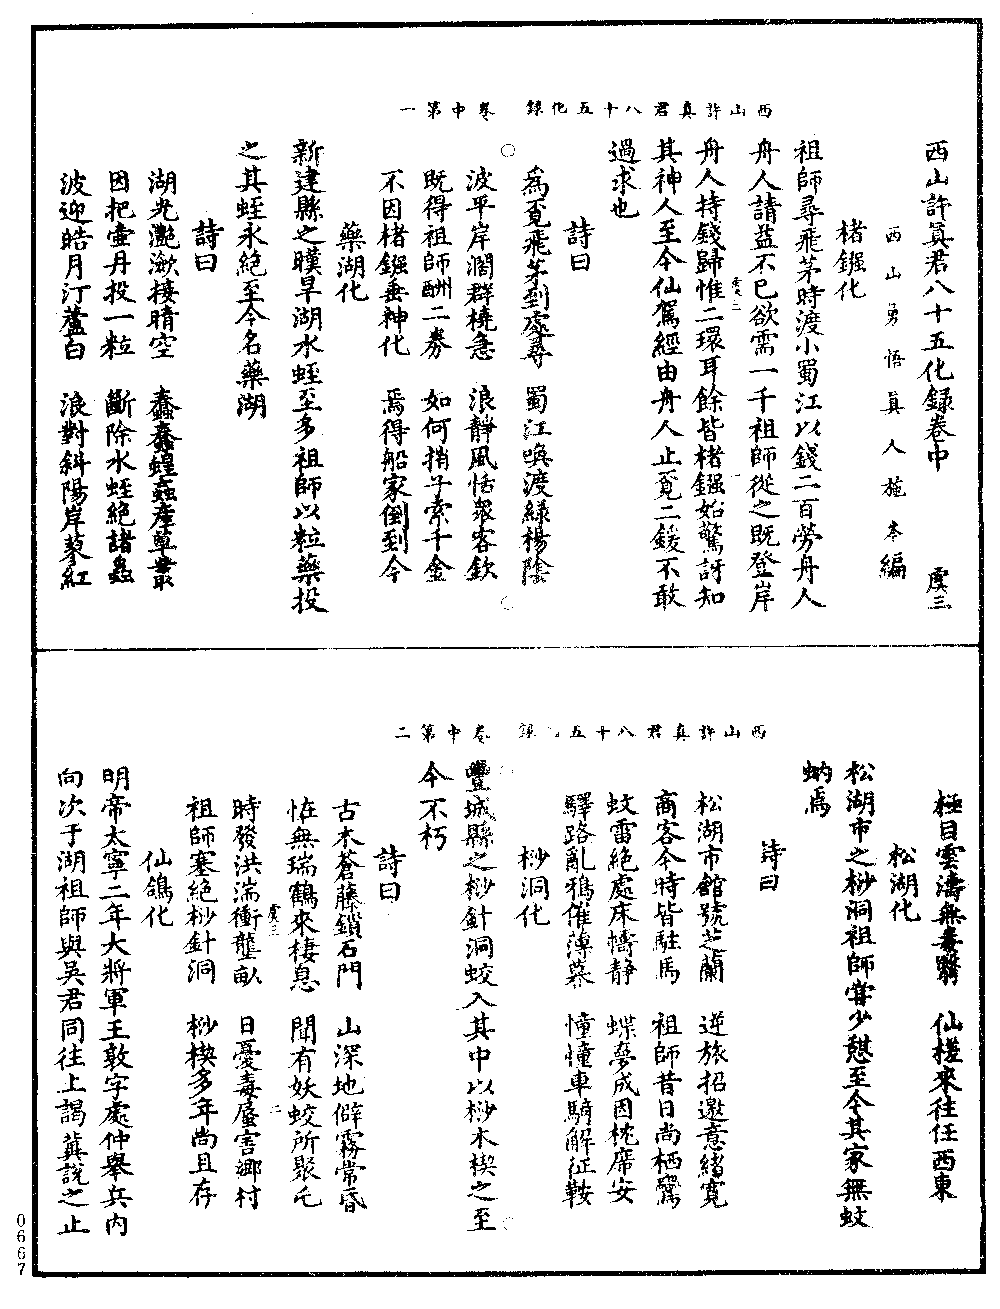 西山許真君八十五化錄 卷中第一
西山許眞君八十五化録卷中 虞三
西山勇悟眞人施本編
楮鏹化
祖師尋飛茅時渡小蜀江以錢二百勞舟人
舟人請益不已欲需一千祖師從之既登岸
虞二
舟人持錢歸惟二環耳餘皆楮鏹始驚訝知
其神人至今仙駕經由舟人止覓二錢不敢
過求也
詩曰
爲覓飛茅到處尋 蜀江喚渡緑楊陰
波平岸濶群橈急 浪靜風恬衆客欽
既得祖師酬二劵 如何捎子索千金
不因楮鏹垂神化 焉得船家倒到今
藥湖化
新建縣之暵旱湖水蛭至多祖師以粒藥投
之其蛭永絕至今名藥湖
詩曰
湖光灧瀲接晴空 蠢蠢蝗蟲產草叢
因把壷丹投一粒 斷除水蛭絕諸蟲
波迎皓月汀蘆白 浪對斜陽岸蓼紅
西山許真君八十五化錄 卷中第二
極目雲濤無毒孼 仙槎來往任西東
松湖化
松湖市之桫洞祖師甞少憇至今其家無蚊
蚋焉
詩曰
松湖市館號芝蘭 逆旅招邀意緒寬
商客今時皆駐馬 祖師昔日尚栖鸞
蚊雷絕處床幬靜 蝶夢成因枕席安
驛路亂鴉催薄暮 憧憧車騎解征鞍
桫洞化
豐城縣之桫針洞蛟入其中以桫木楔之至
今不朽
詩曰
古木蒼藤鎖石門 山深地僻霧常昏
恠無瑞鶴來棲息 聞有妖蛟所聚乇
虞三 二
時發洪湍衝壟畝 日憂毒蜃害鄉村
祖師塞絕桫針洞 桫楔多年尚且存
仙鴿化
明帝太寧二年大將軍王敦字處仲舉兵内
向次于湖祖師與吳君同往上謁冀說之止
0667